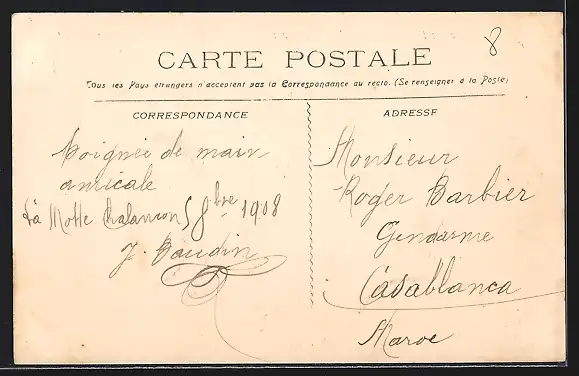 8
CARTE POSTALE
Tous les Pays étrangers n'acceptent pas la Correspondance au recto. (Se renseigner à la Poste)
CORRESPONDANCE
Poignée de main
amicale
La Motte Chalancon 5 8bre 1908
J. Baudin
ADRESSE
Monsieur
Roger Barbier
Gendarme
Casablanca
Maroc